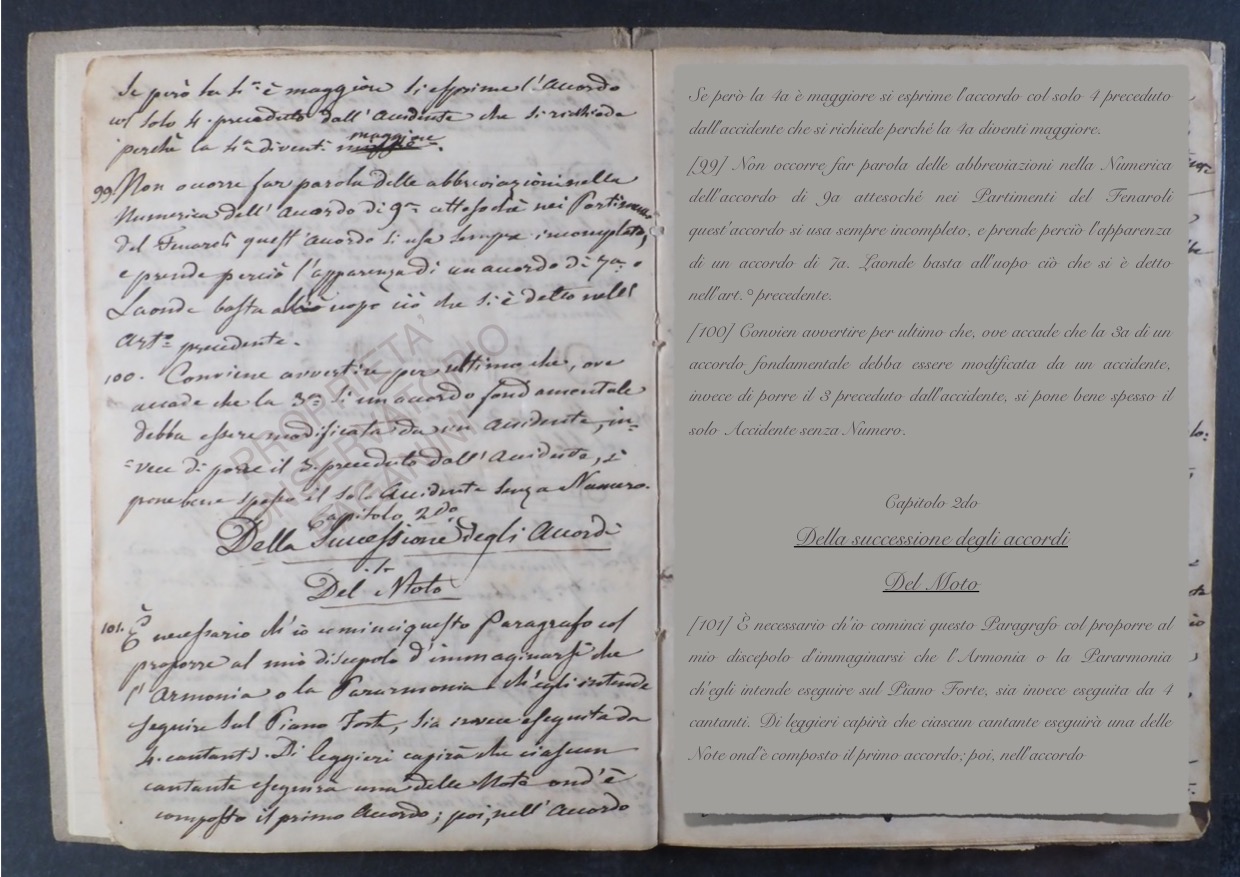 Se però la 4ª è maggiore si esprime l'accordo
col solo 4. preceduto dall'Accidente che si richiede
perchè la 4ª diventi maggiore.
99. Non occorre far parola delle abbreviazioni nella
Numerica dell'Accordo di 9ª attesochè nei Partimenti
del Fenaroli quest'accordo si usa sempre incompleto,
e prende perciò l'apparenza di un accordo di 7ª.
Laonde basta all'uopo ciò che si è detto nell'
Artº precedente.
PROPRIETA'
CONSERVATORIO
100. Conviene avvertire per ultimo che, ove
accade che la 3ª di un accordo fondamentale
debba essere modificata da un accidente, in=
=vece di porre il 3. preceduto dall'Accidente, si
pone bene spesso il solo Accidente senza Numero.
Capitolo 2do
Della Successione degli Accordi
Del Moto
101. È necessario ch'io cominci questo Paragrafo col
proporre al mio discepolo d'immaginarsi che
l'Armonia o la Pararmonia ch'egli intende
seguire sul Piano Forte, sia invece eseguita da
4. cantanti. Di leggieri capirà che ciascun
cantante eseguirà una delle Note ond'è
composto il primo Accordo; poi, nell'Accordo
Se però la 4a è maggiore si esprime l'accordo col solo 4 preceduto
dall'accidente che si richiede perché la 4a diventi maggiore.
[99] Non occorre far parola delle abbreviazioni nella Numerica
dell'accordo di 9a attesoché nei Partimenti del Fenaroli
quest'accordo si usa sempre incompleto, e prende perciò l'apparenza
di un accordo di 7a. Laonde basta all'uopo ciò che si è detto
nell'art.° precedente.
[100] Convien avvertire per ultimo che, ove accade che la 3a di un
accordo fondamentale debba essere modificata da un accidente,
invece di porre il 3 preceduto dall'accidente, si pone bene spesso il
solo Accidente senza Numero.
Capitolo 2do
Della successione degli accordi
Del Moto
[101] È necessario ch'io cominci questo Paragrafo col proporre al
mio discepolo d'immaginarsi che l'Armonia o la Pararmonia
ch'egli intende eseguire sul Piano Forte, sia invece eseguita da 4
cantanti. Di leggieri capirà che ciascun cantante eseguirà una delle
Note ond'è composto il primo accordo; poi, nell'accordo